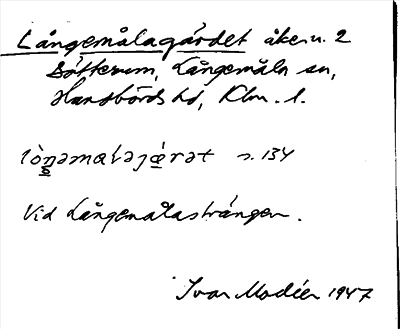 Långemålagärdet åker u. 2
Sötterum, Långemåla sn,
Handbörds hd, Klm. l.
s. 134
Vid Långemålasträngen.
Ivar Modéer 1947